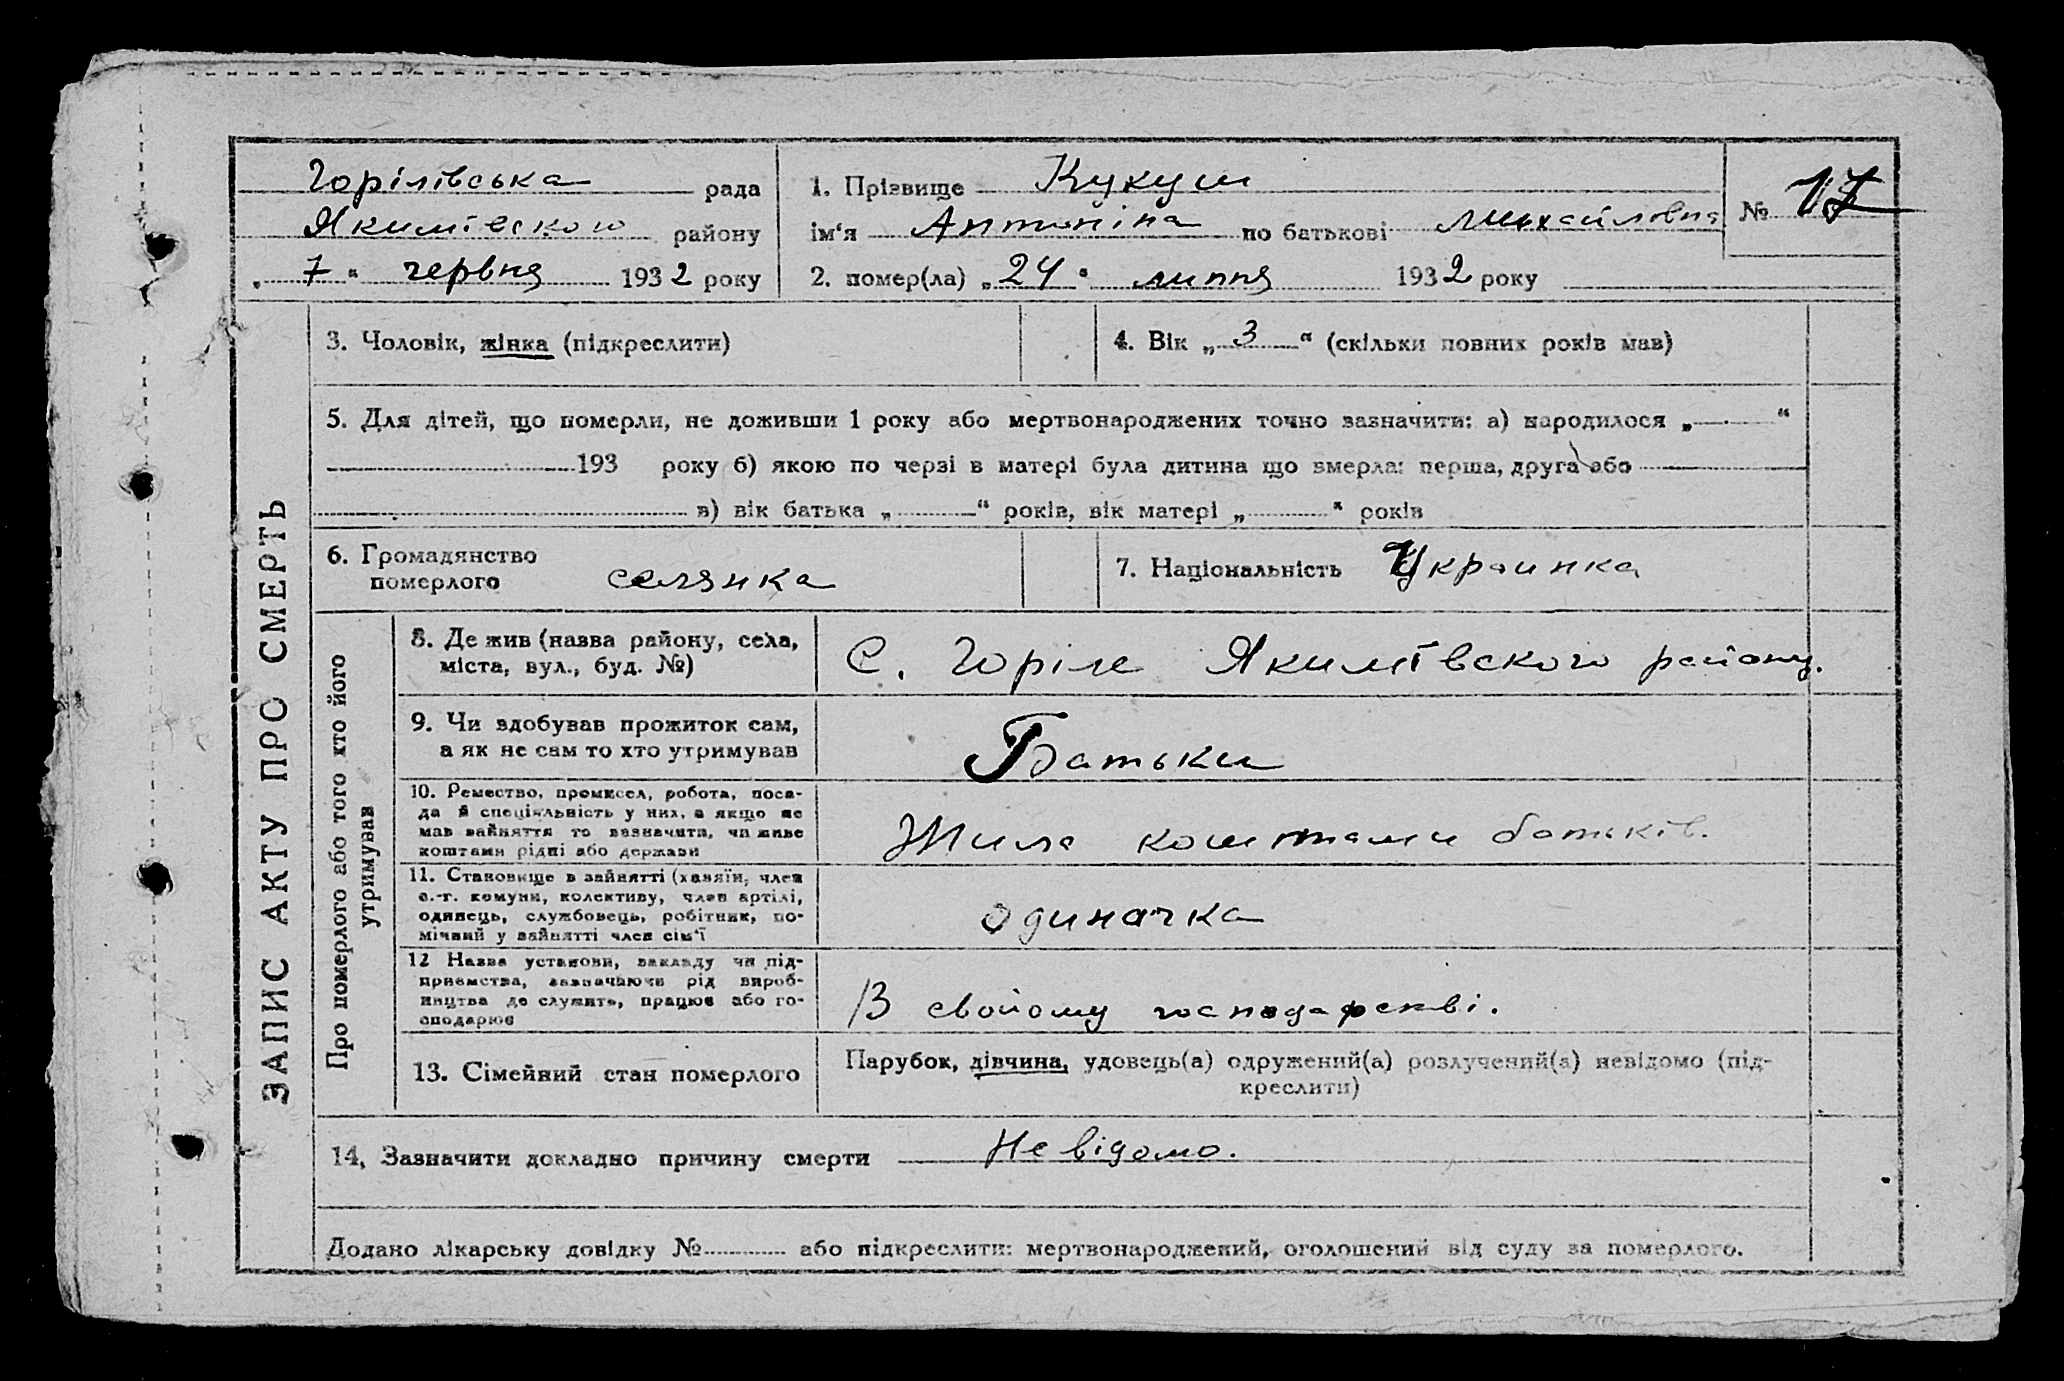 Горілівська рада
Якимівского району
„ 7 “ червня 1932 року
1. Прізвище Кукуш
ім‘я Антоніна по батькові Михайловна
№ 17
2. помер(ла) „ 24 “ липня 1932 року
ЗАПИС АКТУ ПРО СМЕРТЬ
3. Чоловік, жінка (підкреслити)
4. Вік „ 3 “ (скільки повних років мав)
5. Для дітей, що померли, не доживши 1 року або мертвонароджених точно зазначити: а) народилося „ “
193 року б) якою по черзі в матері була дитина що вмерла: перша, друга або
в) вік батька „ “ років, вік матері „ “ років
6. Громадянство
померлого селянка
7. Національність Украинка
Про померлого або того хто його
утримував
8. Де жив (назва району, села,
міста, вул., буд. №)
С. Горіле Якимівского району.
9. Чи здобував прожиток сам,
а як не сам то хто утримував
Батьки
10. Ремество, промисел, робота, поса-
да й спеціяльність у них, а якщо не
мав зайняття то зазначити, чи живе
коштами рідні або держави
Жила коштами батьків.
11. Становище в зайнятті (хазяїн, член
с.-г. комуни, колективу, член артілі,
одинець, службовець, робітник, по-
мічний у зайнятті член сім‘ї
одиначка
12 Назва установи, закладу чи під-
приємства, зазначаючи рід вироб-
ництва де служить, працює або го-
сподарює
В свойому господарскві.
13. Сімейний стан померлого
Парубок, дівчина, удовець(а) одружений(а) розлучений(а) невідомо (під-
креслити)
14, Зазначити докладно причину смерти Невідомо.
Додано лікарську довідку № або підкреслити: мертвонароджений, оголошений від суду за померлого.